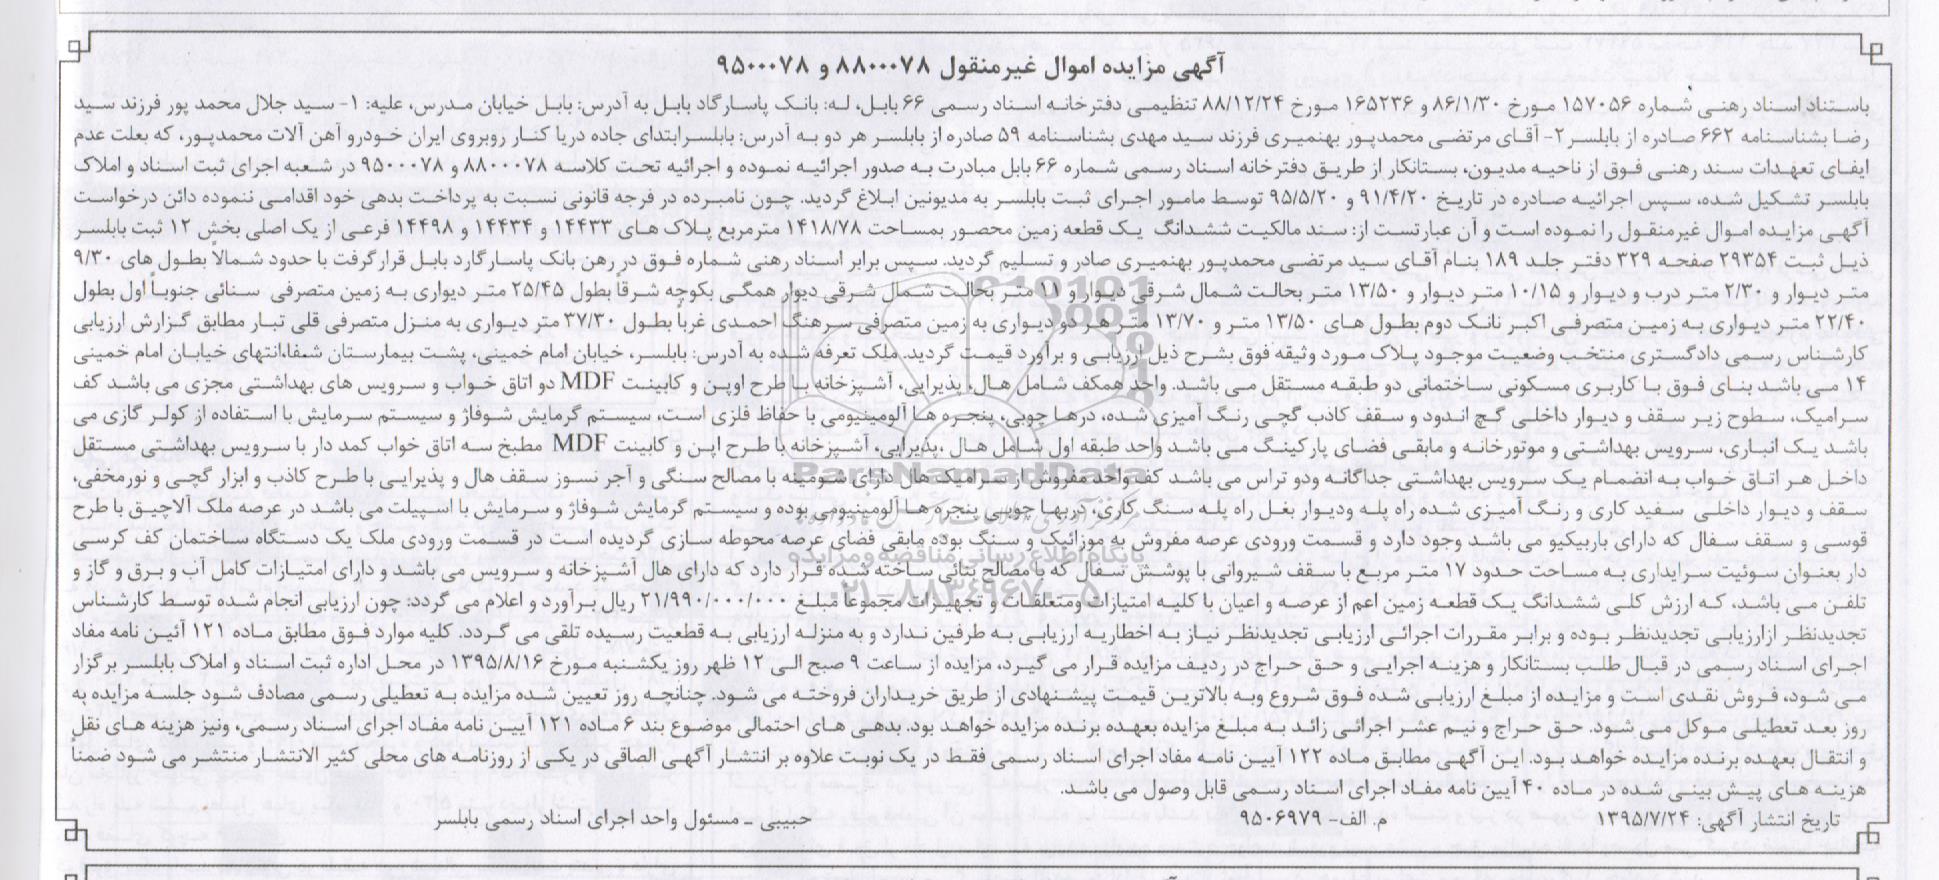 آگهی مزایده اموال غیرمنقول ۸۸۰۰۰۷۸ و ۹۵۰۰۰۷۸
باستناد اسناد رهنی شماره ۱۵۷۰۵۶ مورخ ۸۶/۱/۳۰ و ۱۶۵۲۳۶ مورخ ۸۸/۱۲/۲۴ تنظیمی دفترخانه اسناد رسمی ۶۶ بابل، له: بانک پاسارگاد بابل به آدرس: بابل خیابان مدرس، علیه: ۱- سید جلال محمد پور فرزند سید
رضا بشناسنامه ۶۶۲ صادره از بابلسر ۲- آقای مرتضی محمدپور بهنمیری فرزند سید مهدی بشناسنامه ۵۹ صادره از بابلسر هر دو به آدرس: بابلسرابتدای جاده دریا کنار روبروی ایران خودرو آهن آلات محمدپور، که بعلت عدم
ایفای تعهدات سند رهنی فوق از ناحیه مدیون، بستانکار از طریق دفترخانه اسناد رسمی شماره ۶۶ بابل مبادرت به صدور اجرائیه نموده و اجرائیه تحت کلاسه ۸۸۰۰۰۷۸ و ۹۵۰۰۰۷۸ در شعبه اجرای ثبت اسناد و املاک
بابلسر تشکیل شده، سپس اجرائیه صادره در تاریخ ۹۱/۴/۲۰ و ۹۵/۵/۲۰ توسط مامور اجرای ثبت بابلسر به مدیونین ابلاغ گردید. چون نامبرده در فرجه قانونی نسبت به پرداخت بدهی خود اقدامی ننموده دائن درخواست
آگهی مزایده اموال غیرمنقول را نموده است و آن عبارتست از: سند مالکیت ششدانگ یک قطعه زمین محصور بمساحت ۱۴۱۸/۷۸ مترمربع پلاک های ۱۴۴۳۳ و ۱۴۴۳۴ و ۱۴۴۹۸ فرعی از یک اصلی بخش ۱۲ ثبت بابلسر
ذیل ثبت ۲۹۳۵۴ صفحه ۳۲۹ دفتر جلد ۱۸۹ بنام آقای سید مرتضی محمدپور بهنمیری صادر و تسلیم گردید. سپس برابر اسناد رهنی شماره فوق در رهن بانک پاسارگارد بابل قرارگرفت با حدود شمالاً بطول های ۹/۳۰
متر دیوار و ۲/۳۰ متر درب و دیوار و ۱۰/۱۵ متر دیوار و ۱۳/۵۰ متر بحالت شمال شرقی دیوار و ۱۱ متر بحالت شمال شرقی دیوار همگی بکوچه شرقاً بطول ۲۵/۴۵ متر دیواری به زمین متصرفی سنائی جنوباً اول بطول
۲۲/۴۰ متر دیواری به زمین متصرفی اکبر نانک دوم بطول های ۱۳/۵۰ متر و ۱۳/۷۰ متر هر دو دیواری به زمین متصرفی سرهنگ احمدی غرباً بطول ۳۷/۳۰ متر دیواری به منزل متصرفی قلی تبار مطابق گزارش ارزیابی
کارشناس رسمی دادگستری منتخب وضعیت موجود پلاک مورد وثیقه فوق بشرح ذیل ارزیابی و برآورد قیمت گردید. ملک تعرفه شده به آدرس: بابلسر، خیابان امام خمینی، پشت بیمارستان شفا،انتهای خیابان امام خمینی
۱۴ می باشد بنای فوق با کاربری مسکونی ساختمانی دو طبقه مستقل می باشد. واحد همکف شامل هال، پذیرایی، آشپزخانه با طرح اوپن و کابینت MDF دو اتاق خواب و سرویس های بهداشتی مجزی می باشد کف
سرامیک، سطوح زیر سقف و دیوار داخلی گچ اندود و سقف کاذب گچی رنگ آمیزی شده، درها چوبی، پنجره ها آلومینیومی با حفاظ فلزی است، سیستم گرمایش شوفاژ و سیستم سرمایش با استفاده از کولر گازی می
باشد یک انباری، سرویس بهداشتی و موتورخانه و مابقی فضای پارکینگ می باشد واحد طبقه اول شامل هال ،پذیرایی، آشپزخانه با طرح اپن و کابینت MDF مطبخ سه اتاق خواب کمد دار با سرویس بهداشتی مستقل
داخل هر اتاق خواب به انضمام یک سرویس بهداشتی جداگانه ودو تراس می باشد کف واحد مفروش از سرامیک هال دارای شومینه با مصالح سنگی و آجر نسوز سقف هال و پذیرایی با طرح کاذب و ابزار گچی و نورمخفی،
سقف و دیوار داخلی سفید کاری و رنگ آمیزی شده راه پله ودیوار بغل راه پله سنگ کاری، دربها چوبی پنجره ها آلومینیومی بوده و سیستم گرمایش شوفاژ و سرمایش با اسپیلت می باشد در عرصه ملک آلاچیق با طرح
قوسی و سقف سفال که دارای باربیکیو می باشد وجود دارد و قسمت ورودی عرصه مفروش به موزائیک و سنگ بوده مابقی فضای عرصه محوطه سازی گردیده است در قسمت ورودی ملک یک دستگاه ساختمان کف کرسی
دار بعنوان سوئیت سرایداری به مساحت حدود ۱۷ متر مربع با سقف شیروانی با پوشش سفال که با مصالح بنائی ساخته شده قرار دارد که دارای هال آشپزخانه و سرویس می باشد و دارای امتیازات کامل آب و برق و گاز و
تلفن می باشد، که ارزش کلی ششدانگ یک قطعه زمین اعم از عرصه و اعیان با کلیه امتیازات ومتعلقات و تجهیزات مجموعاً مبلغ ۲۱/۹۹۰/۰۰۰/۰۰۰ ریال برآورد و اعلام می گردد: چون ارزیابی انجام شده توسط کارشناس
تجدیدنظر ازارزیابی تجدیدنظر بوده و برابر مقررات اجرائی ارزیابی تجدیدنظر نیاز به اخطاریه ارزیابی به طرفین ندارد و به منزله ارزیابی به قطعیت رسیده تلقی می گردد. کلیه موارد فوق مطابق ماده ۱۲۱ آئین نامه مفاد
اجرای اسناد رسمی در قبال طلب بستانکار و هزینه اجرایی و حق حراج در ردیف مزایده قرار می گیرد، مزایده از ساعت ۹ صبح الی ۱۲ ظهر روز یکشنبه مورخ ۱۳۹۵/۸/۱۶ در محل اداره ثبت اسناد و املاک بابلسر برگزار
می شود، فروش نقدی است و مزایده از مبلغ ارزیابی شده فوق شروع وبه بالاترین قیمت پیشنهادی از طریق خریداران فروخته می شود. چنانچه روز تعیین شده مزایده به تعطیلی رسمی مصادف شود جلسه مزایده به
روز بعد تعطیلی موکل می شود. حق حراج و نیم عشر اجرائی زائد به مبلغ مزایده بعهده برنده مزایده خواهد بود. بدهی های احتمالی موضوع بند ۶ ماده ۱۲۱ آیین نامه مفاد اجرای اسناد رسمی، ونیز هزینه های نقل
و انتقال بعهده برنده مزایده خواهد بود. این آگهی مطابق ماده ۱۲۲ آیین نامه مفاد اجرای اسناد رسمی فقط در یک نوبت علاوه بر انتشار آگهی الصاقی در یکی از روزنامه های محلی کثیر الانتشار منتشر می شود ضمناً
هزینه های پیش بینی شده در ماده ۴۰ آیین نامه مفاد اجرای اسناد رسمی قابل وصول می باشد.
تاریخ انتشار آگهی: ۱۳۹۵/۷/۲۴ م. الف- ۹۵۰۶۹۷۹ حبیبی ـ مسئول واحد اجرای اسناد رسمی بابلسر
ParsNamadData
پایگاه اطلاع رسانی مناقصه ومزایده
۰۲۱-۸۸۳۴۹۶۷۰-۵